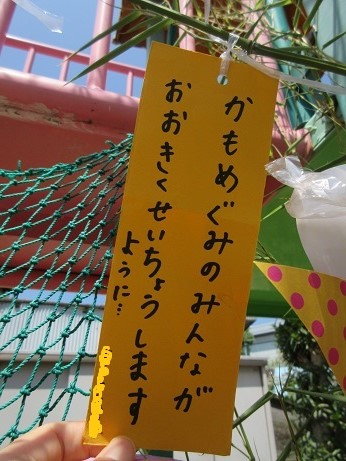 かもめぐみのみんなが
おおきくせいちょうします
ように…